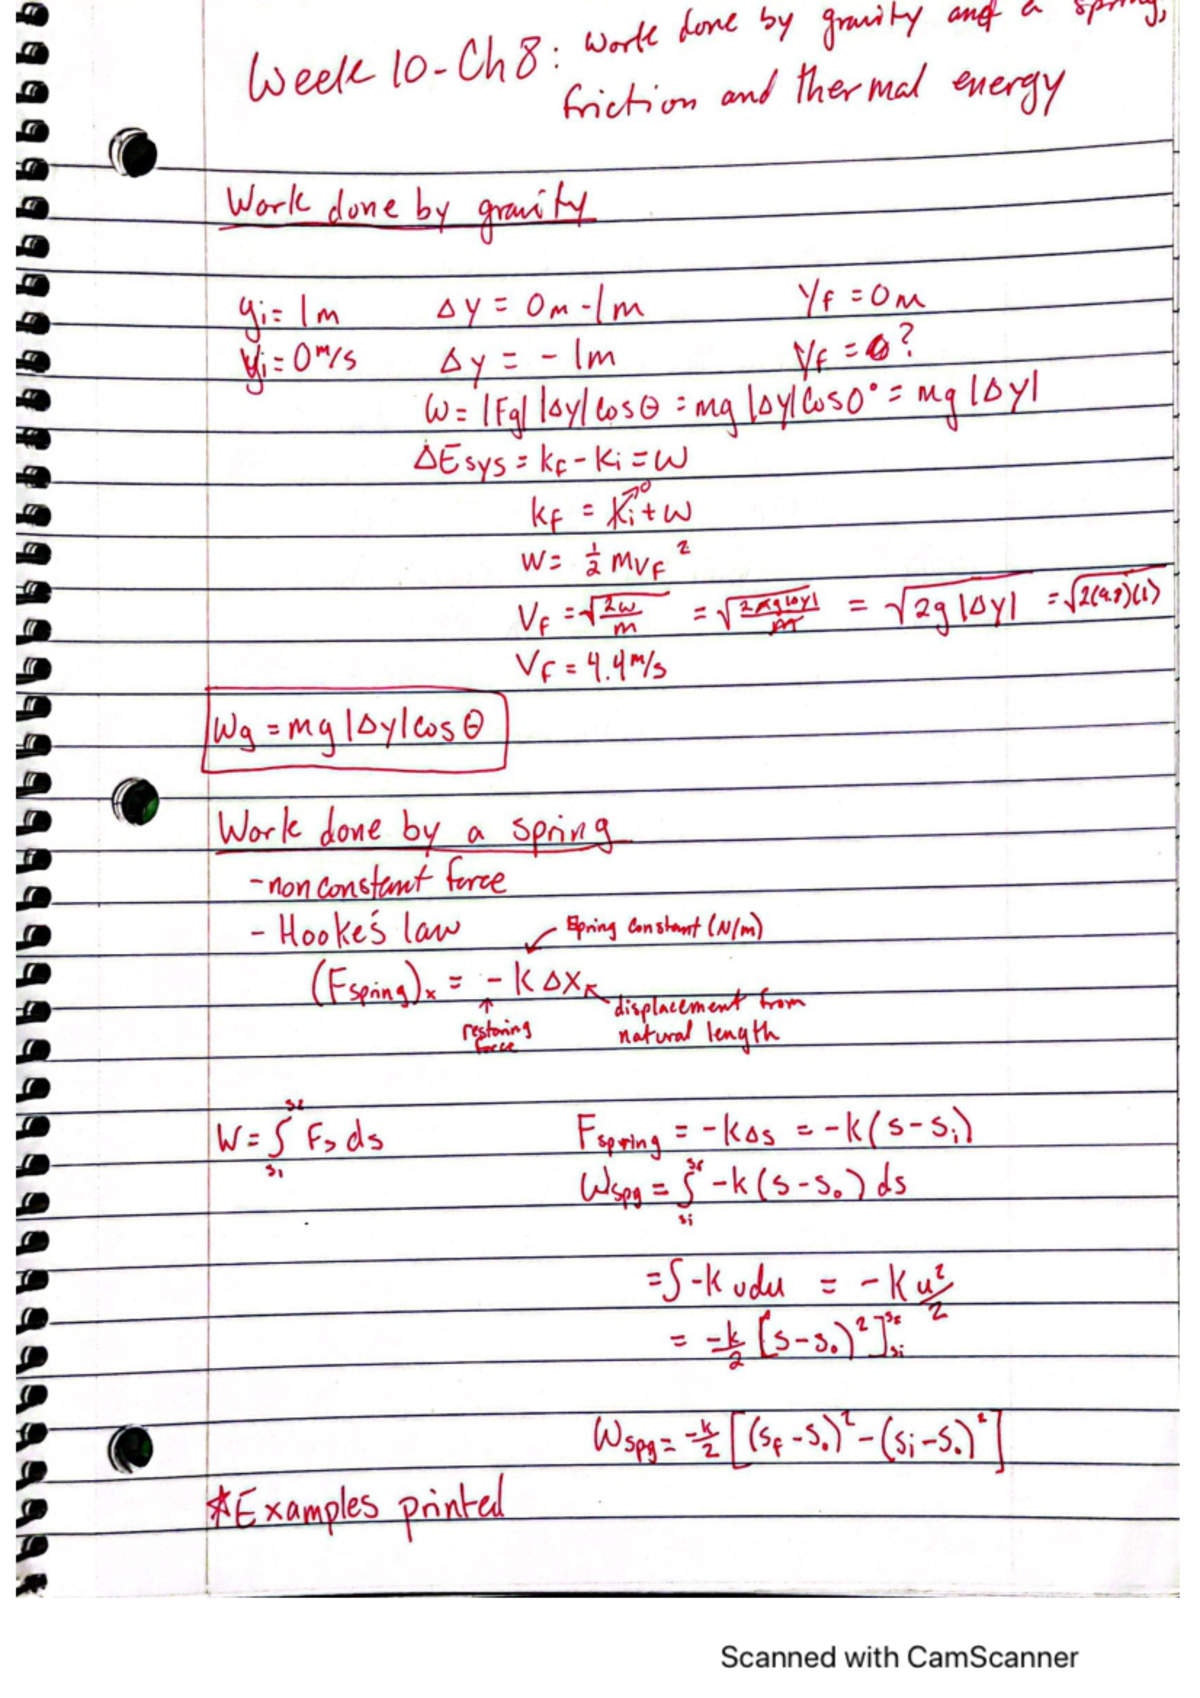 Week 10-Ch 8: Work done by gravity and a spring,
friction and thermal energy
Work done by gravity
yi = 1m Δy = 0m - 1m yf = 0m
Vi = 0 m/s Δy = - 1m Vf = ?
W = |Fg| |Δy| cosθ = mg |Δy| cos0° = mg |Δy|
ΔEsys = kf - Ki = W
kf = Ki→0 + W
W = 1/2 mvf²
Vf = √(2W/m) = √(2mg|Δy|/m) = √(2g|Δy|) = √(2(9.8)(1))
Vf = 4.4 m/s
Wg = mg |Δy| cos θ
Work done by a spring
- nonconstant force
- Hooke's law Spring constant (N/m)
(Fspring)x = - k Δx
restoring force displacement from natural length
W = ∫si^sf Fs ds Fspring = -kΔs = -k(s - si)
Wspg = ∫si^sf -k(s - s₀) ds
= ∫ -k u du = -k u²/2
= -k/2 [s - s₀)²]si^sf
Wspg = -k/2 [(sf - s₀)² - (si - s₀)²]
*Examples printed
Scanned with CamScanner